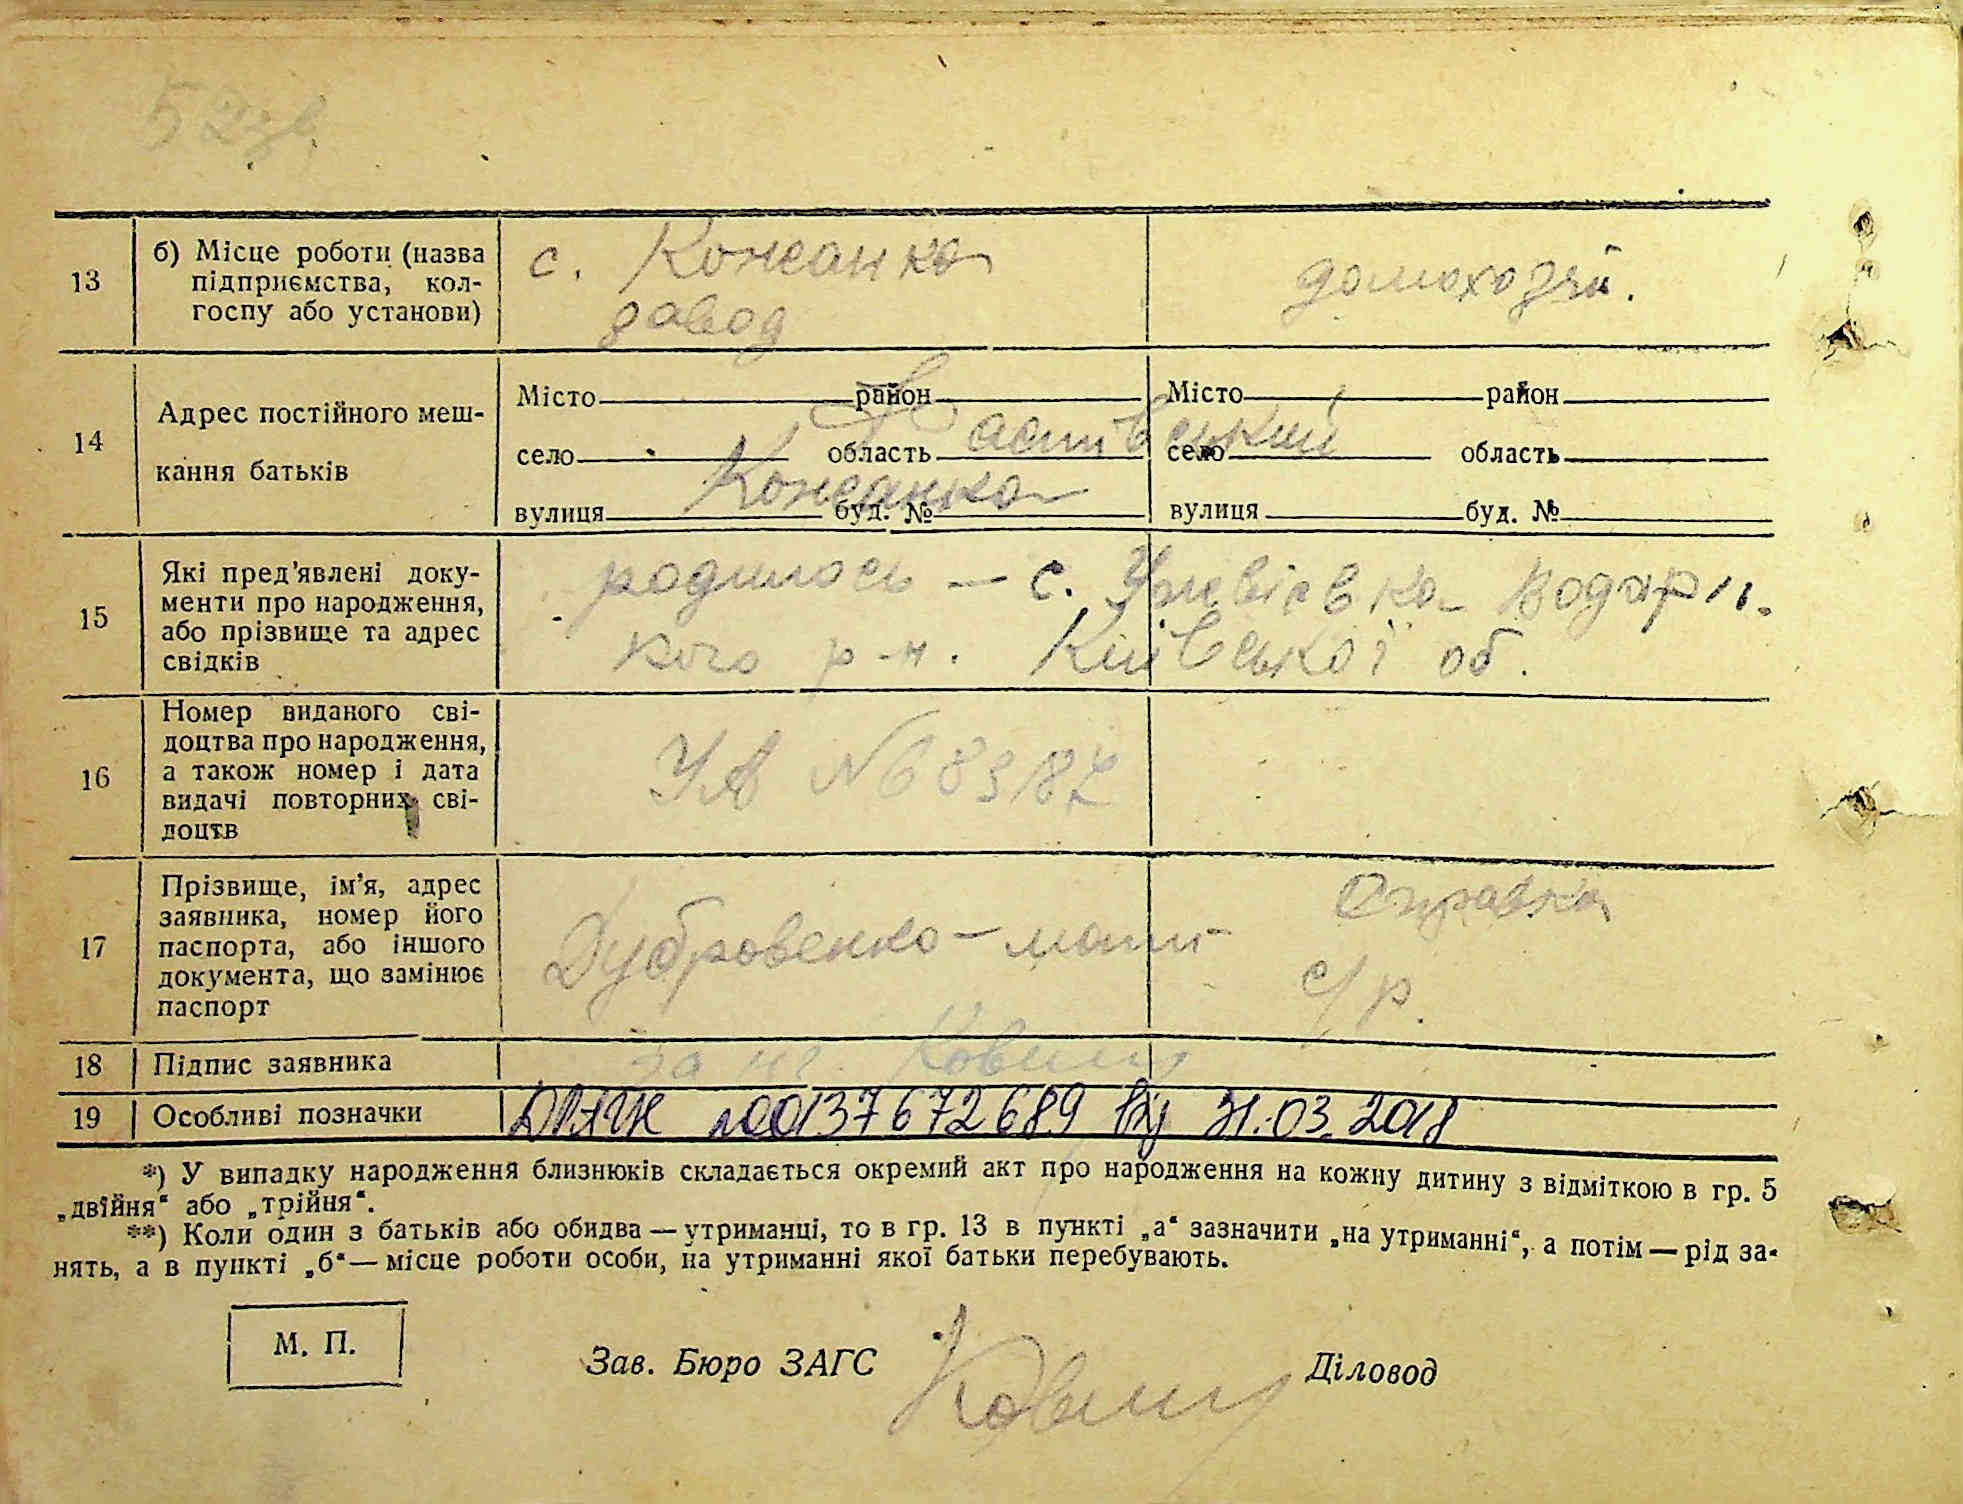 52зв
13
б) Місце роботи (назва
підприємства, кол-
госпу або установи)
с. Кожанка
завод
домохозяй.
14
Адрес постійного меш-
кання батьків
Місто район
село область
вулиця буд. №
Місто район
село область
вулиця буд. №
Фастівський
Кожанка
15
Які пред’явлені доку-
менти про народження,
або прізвище та адрес
свідків
родилось — с. Ужвієвка
кого р-н. Київської об.
16
Номер виданого сві-
доцтва про народження,
а також номер і дата
видачі повторних сві-
доцтв
УА №
17
Прізвище, ім’я, адрес
заявника, номер його
паспорта, або іншого
документа, що замінює
паспорт
Дубровенко – мати
Справка
с/р.
18
Підпис заявника
за нг.
19
Особливі позначки
00137672689 від 31.03.2018
*) У випадку народження близнюків складається окремий акт про народження на кожну дитину з відміткою в гр. 5
„двійня“ або „трійня“.
**) Коли один з батьків або обидва — утриманці, то в гр. 13 в пункті „а“ зазначити „на утриманні“, а потім — рід за-
нять, а в пункті „б“ — місце роботи особи, на утриманні якої батьки перебувають.
М. П.
Зав. Бюро ЗАГС
Діловод